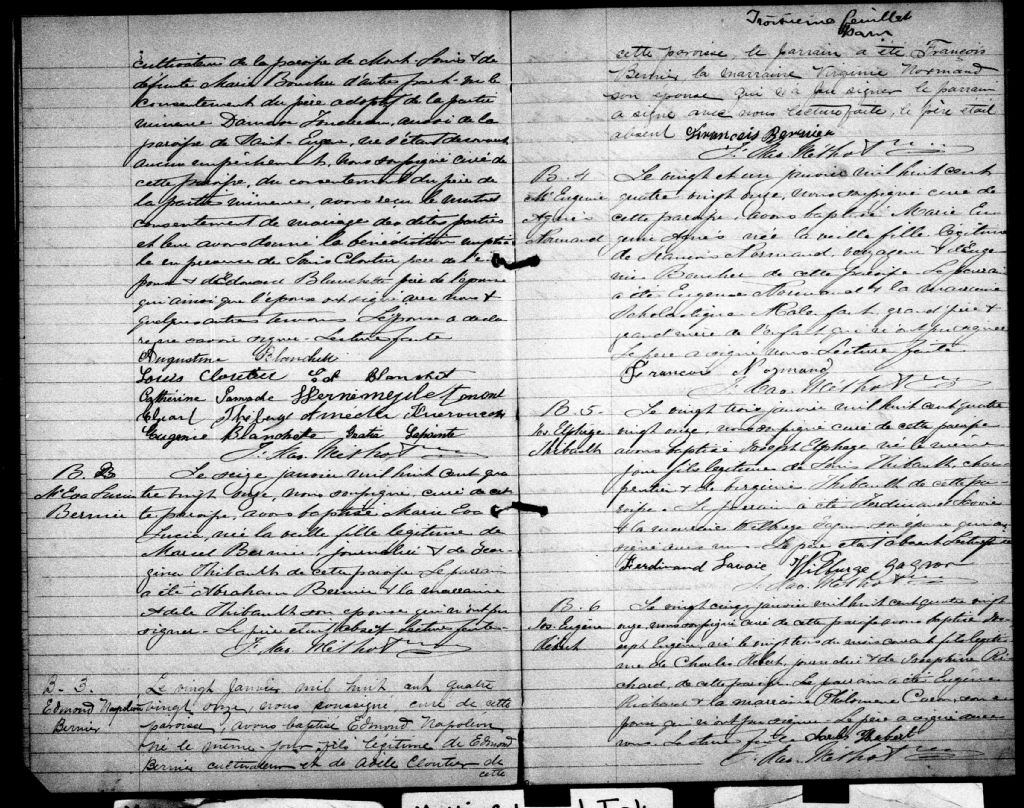 cultivateur de la paroisse de Mont-Louis & de
défunte Marie Boucher d'autre part, vu le
consentement du père adoptif de la partie
mineure Damase, aussi de la
paroisse de Saint-Eugène, ne s'étant découvert
aucun empêchement, nous soussigné curé de
cette paroisse, du consentement du père de
la partie mineure, avons reçu le mutuel
consentement de mariage des dites parties
et leur avons donné la bénédiction nuptia
le en presence de Louis Cloutier père de l'é
poux & d'Edouard Blanchette père de l'épouse
qui ainsi que l'époux ont signé avec nous &
quelques autres temoins L'épouse a decla
re ne savoir signer. Lecture faite
Augustine Blanchet
Louis Cloutier Ed Blanchet
Catherine
Eugenie Blanchette Lapointe
F. Xao. Méthot
B. 2
M. Eva Lucie
Bernier
Le seize janvier mil huit cent qua
tre vingt onze, nous soussigné, curé de cet
te paroisse, avons baptisé Marie Eva
Lucie, née la veille fille légitime de
Marcel Bernier, journalier & de Geor
gina Thibault de cette paroisse Le parrain
a été Abraham Bernier & la marraine
Adele Thibault son epouse qui n'ont pu
signer. Le père etant absent Lecture faite
F. Xao. Méthot
B. 3.
Edmond Napoléon
Bernier
Le vingt Janvier mil huit cent quatre
vingt onze, nous soussigné, curé de cette
paroisse, avons baptisé Edmond Napoléon
né le même jour, fils légitime de Edmond
Bernier cultivateur et de Adèle Cloutier de
cette
Troisieme feuillet
cette paroisse le parrain a été François
Bernier la marraine Virginie Normand
son epouse qui n'a pu signer le parrain
a signé avec nous lecture faite, le père etait
absent François Bernier
F. Xao. Méthot
B. 4
M. Eugenie
Agnès
Normand
Le vingt et un janvier mil huit cent
quatre vingt onze, nous soussigné curé de
cette paroisse, avons baptisé Marie Eu
genie Agnès née la veille fille légitime
de François Normand, voyageur & d'Eugé
nie Boucher de cette paroisse. Le parrain
a été Eugene Normand & la marraine
Scholastique Malenfant, grand'père &
grand'mère de l'enfant qui n'ont pu signer
Le père a signé nous Lecture faite
François Normand
F. Xao. Méthot
B. 5.
Jos Elphege
Thibault
Le vingt trois janvier mil huit cent quatre
vingt onze, nous soussigné curé de cette paroisse
avons baptisé Joseph Elphege né le même
jour fils légitime de Louis Thibault, char
pentier & de Virginie Thibault de cette pa
roisse. Le parrain a été Ferdinand Lavoie
& la marraine Wilburge Gagnon son epouse qui a
signé avec nous. Le père etait absent Lecture faite
Ferdinand Lavoie Wilburge Gagnon
F. Xao. Méthot
B. 6
Jos Eugène
Hébert
Le vingt cinq janvier mil huit cent quatre vingt
onze, nous soussigné curé de cette paroisse avons baptisé Jos
eph Eugène, né le du mois courant fils légiti
me de Charles Hébert, & de Joséphine Ri
chard, de cette paroisse. Le parrain a été Eugène
Richard & la marraine Philomene Caron, son é
pouse qui n'ont pu signer. Le père a signé avec
nous. Lecture faite Hebert
F. Xao. Méthot